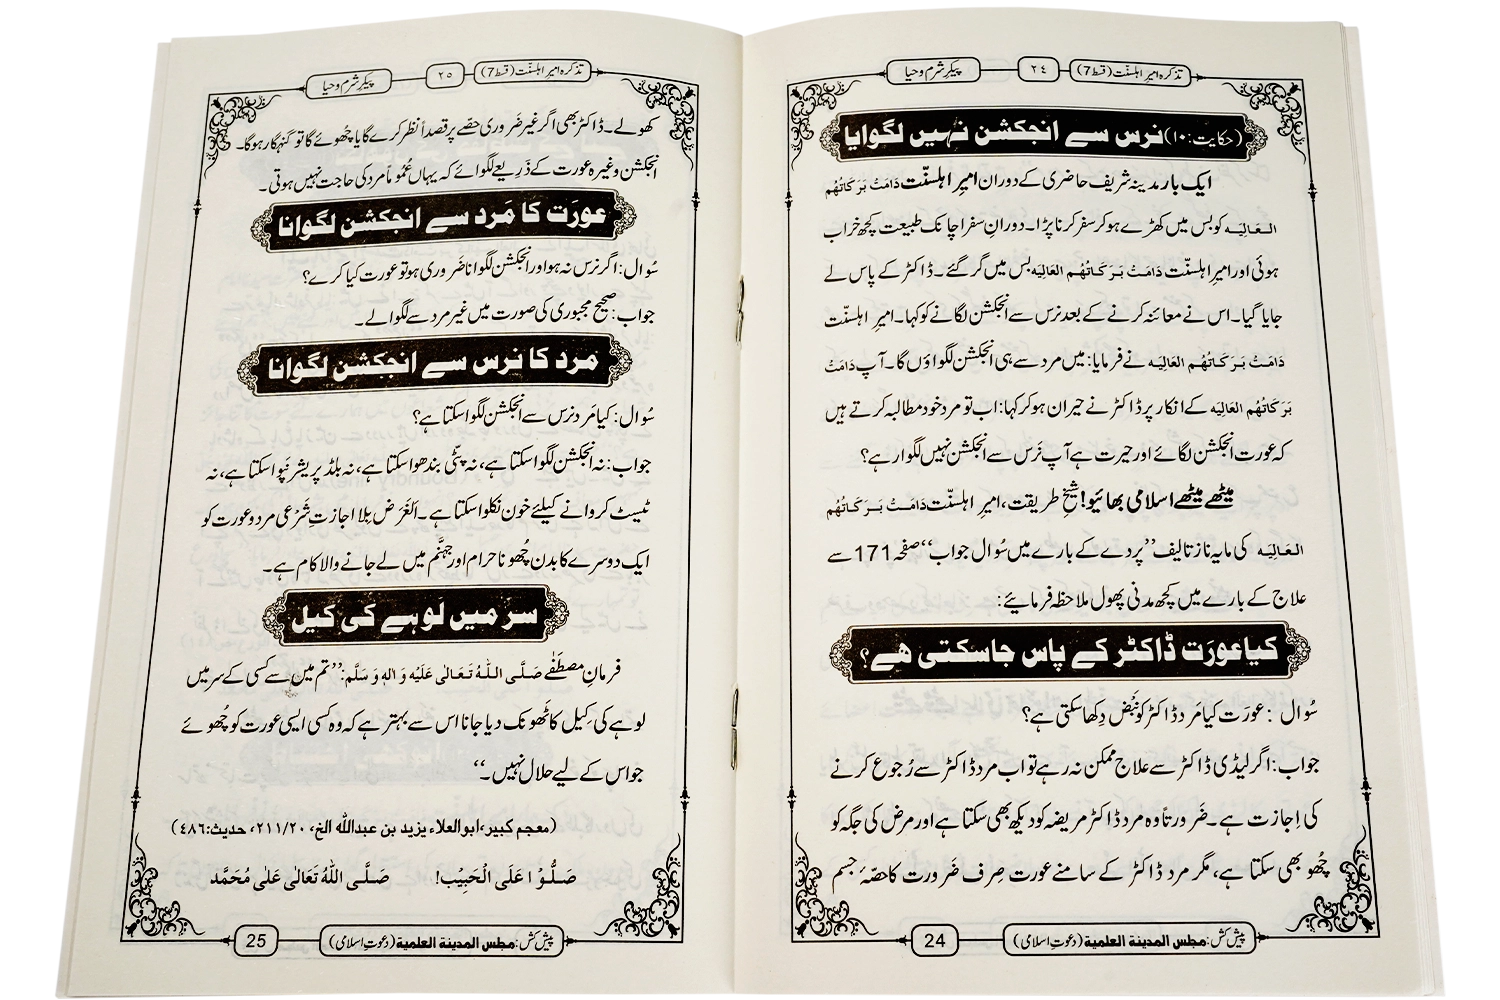 تذکرہ امیرِ اہلسنّت (قسط 7)
٢٤
پیکرِ شرم و حیا
(حکایت: ١٠) نرس سے انجکشن نہیں لگوایا
ایک بار مدینہ شریف حاضری کے دوران امیرِ اہلسنّت دَامَتْ بَرَكَاتُهُم
العَالِيَه کو بس میں کھڑے ہو کر سفر کرنا پڑا۔ دورانِ سفر اچانک طبیعت کچھ خراب
ہوئی اور امیرِ اہلسنّت دَامَتْ بَرَكَاتُهُم العَالِيَه بس میں گر گئے۔ ڈاکٹر کے پاس لے
جایا گیا۔ اس نے معائنہ کرنے کے بعد نرس سے انجکشن لگانے کو کہا۔ امیرِ اہلسنّت
دَامَتْ بَرَكَاتُهُم العَالِيَه نے فرمایا: میں مرد سے ہی انجکشن لگواؤں گا۔ آپ دَامَتْ
بَرَكَاتُهُم العَالِيَه کے انکار پر ڈاکٹر نے حیران ہو کر کہا: اب تو مرد خود مطالبہ کرتے ہیں
کہ عورت انجکشن لگائے اور حیرت ہے آپ نَرس سے انجکشن نہیں لگوا رہے؟
میٹھے میٹھے اسلامی بھائیو! شیخِ طریقت، امیرِ اہلسنّت دَامَتْ بَرَكَاتُهُم
العَالِيَه کی مایہ ناز تالیف ’’پردے کے بارے میں سُوال جواب‘‘ صفحہ 171 سے
علاج کے بارے میں کچھ مدنی پھول ملاحظہ فرمائیے:
کیا عورَت ڈاکٹر کے پاس جاسکتی ہے؟
سُوال : عورَت کیا مَرد ڈاکٹر کو نَبْض دِکھا سکتی ہے؟
جواب: اگر لیڈی ڈاکٹر سے علاج ممکن نہ رہے تو اب مرد ڈاکٹر سے رُجوع کرنے
کی اِجازت ہے۔ ضَرورتاً وہ مرد ڈاکٹر مریضہ کو دیکھ بھی سکتا ہے اور مرض کی جگہ کو
چُھو بھی سکتا ہے، مگر مرد ڈاکٹر کے سامنے عورت صِرف ضَرورت کا حصّۂ جسم
پیش کش: مجلس المدینۃ العلمیۃ (دعوتِ اسلامی)
24
تذکرہ امیرِ اہلسنّت (قسط 7)
٢٥
پیکرِ شرم و حیا
کھولے۔ ڈاکٹر بھی اگر غیر ضَروری حصّے پر قصداً نظر کرے گا یا چُھوئے گا تو گنہگار ہوگا۔
انجکشن وغیرہ عورت کے ذَرِیعے لگوائے کہ یہاں عُمُوماً مرد کی حاجت نہیں ہوتی۔
عورَت کا مَرد سے انجکشن لگوانا
سُوال: اگر نرس نہ ہو اور انجکشن لگوانا ضَروری ہو تو عورت کیا کرے؟
جواب: صحیح مجبوری کی صورت میں غیر مرد سے لگوالے۔
مرد کا نرس سے انجکشن لگوانا
سُوال: کیا مَرد نرس سے انجکشن لگوا سکتا ہے؟
جواب: نہ انجکشن لگوا سکتا ہے، نہ پٹّی بندھوا سکتا ہے، نہ بلڈ پریشر نَپوا سکتا ہے، نہ
ٹیسٹ کروانے کیلئے خون نکلوا سکتا ہے۔ اَلغَرَض بِلا اجازتِ شَرْعی مرد و عورت کو
ایک دوسرے کا بدن چُھونا حرام اور جہنَّم میں لے جانے والا کام ہے۔
سر میں لَوہے کی کِیل
فرمانِ مصطَفٰے صَلَّى اللهُ تَعَالٰى عَلَيْهِ وَ اٰلهٖ وَ سَلَّم: ’’تم میں سے کسی کے سر میں
لوہے کی کِیل کا ٹھونک دیا جانا اس سے بہتر ہے کہ وہ کسی ایسی عورت کو چُھوئے
جو اس کے لیے حلال نہیں۔‘‘
(معجم کبیر، ابو العلاء یزید بن عبداللّٰہ الخ، ٢١١/٢٠، حدیث: ٤٨٦)
صَلُّوْا عَلَى الْحَبِيْب! صَلَّى اللهُ تَعَالٰى عَلٰى مُحَمَّد
پیش کش: مجلس المدینۃ العلمیۃ (دعوتِ اسلامی)
25